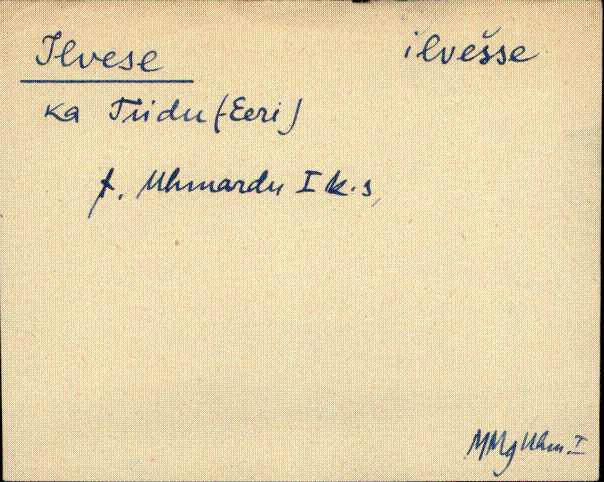 Ilvese ilvešše
ka Tiidu (-Eeri)
t. Uhmardu I k. s,
MMg Uhm. I